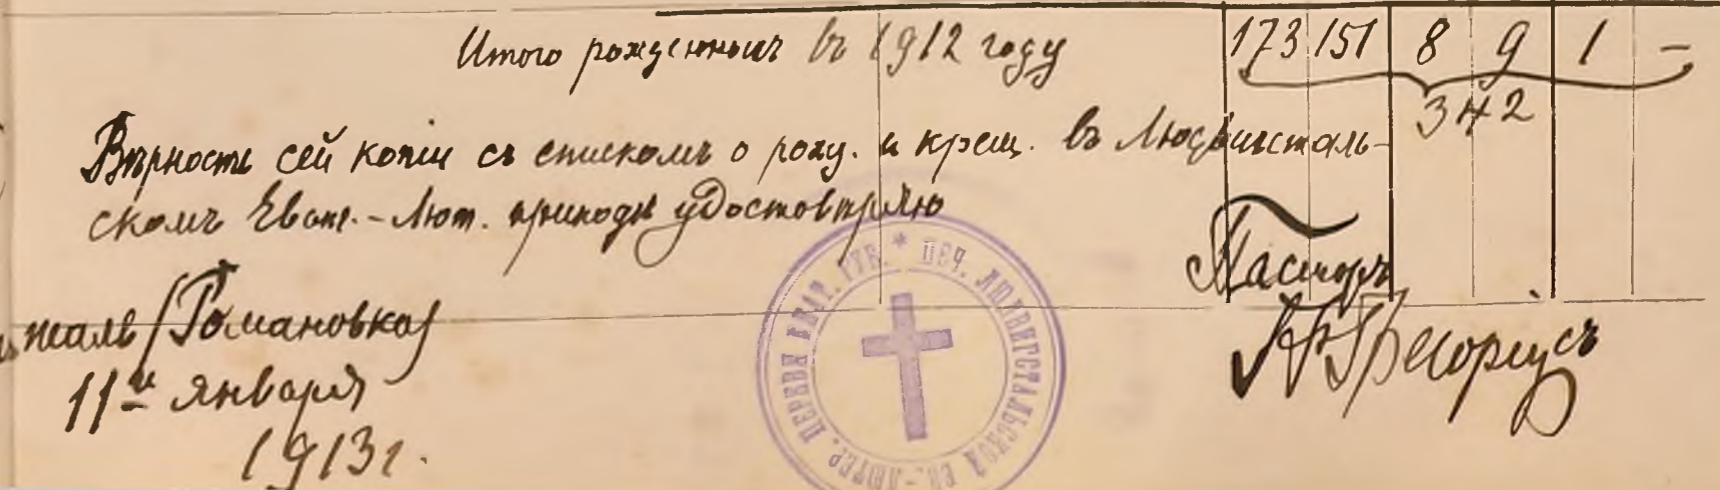 Итого рожденныхъ въ 1912 году 173 151 8 9 1 –
342
Вѣрность сей копіи съ спискомъ о рожд. и крещ. въ Людвигсталь-
скомъ Еванг.-Лют. приходѣ удостовѣряю
Пасторъ
таль (Романовка)
11го января
1913 г.
* ПЕЧ. ЛЮДВИГСТАЛЬСКОЙ ЕВ.-ЛЮТЕР. ЦЕРКВИ ЕКАТ. ГУБ.